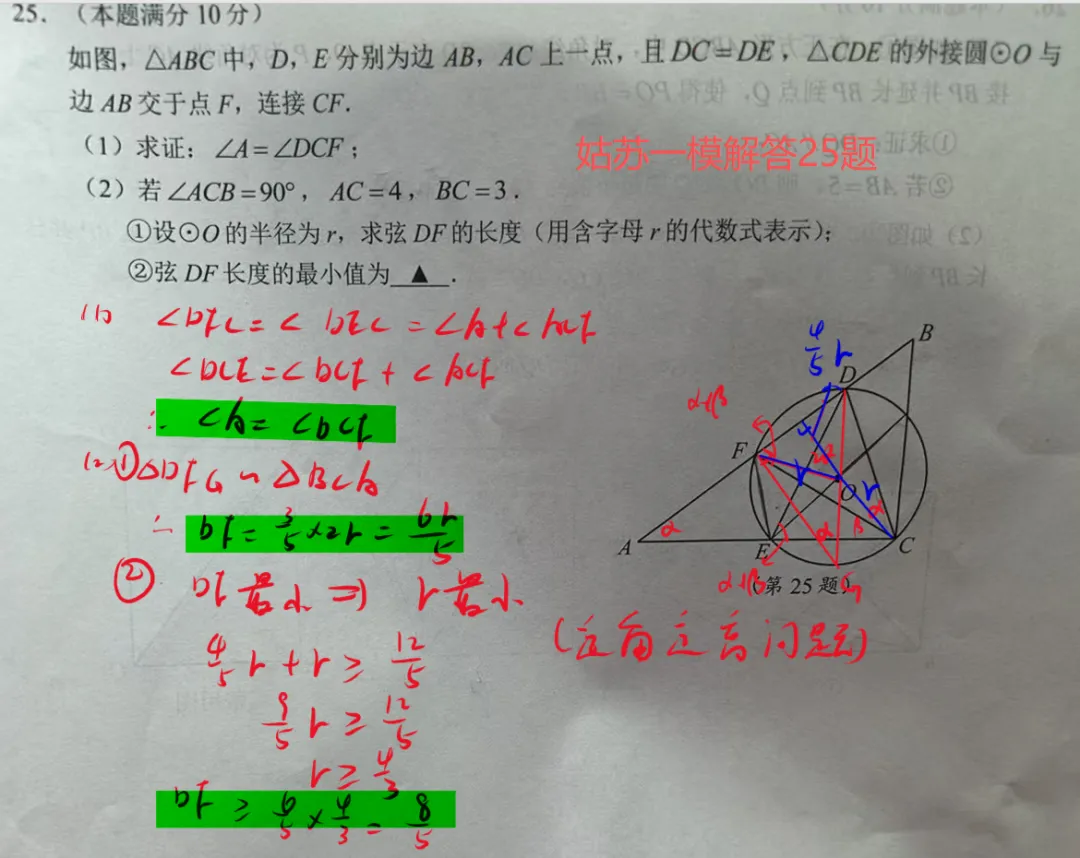 25. (本题满分 10 分)
如图，△ABC 中，D，E 分别为边 AB，AC 上一点，且 DC=DE，△CDE 的外接圆⊙O 与
边 AB 交于点 F，连接 CF.
(1) 求证：∠A=∠DCF；
姑苏一模解答25题
(2) 若∠ACB=90°，AC=4，BC=3.
①设⊙O 的半径为 r，求弦 DF 的长度（用含字母 r 的代数式表示）；
②弦 DF 长度的最小值为 ▲ .
(1) ∠DFC=∠DEC=∠A+∠ACF
∠DCE=∠DCF+∠ACF
∴ ∠A=∠DCF
(2)①△DFG∽△BCA
∴ DF=3/5×2r=6r/5
② DF最小 ⇔ r最小
4/5 r+r≥12/5
9/5 r≥12/5
r≥4/3
DF≥6/5×4/3=8/5
B
4/5 r
D
α+β
F
x
r
O
r
α
A
α
E
α
β
C
α+β
(第 25 题)
G
(定角定高问题)